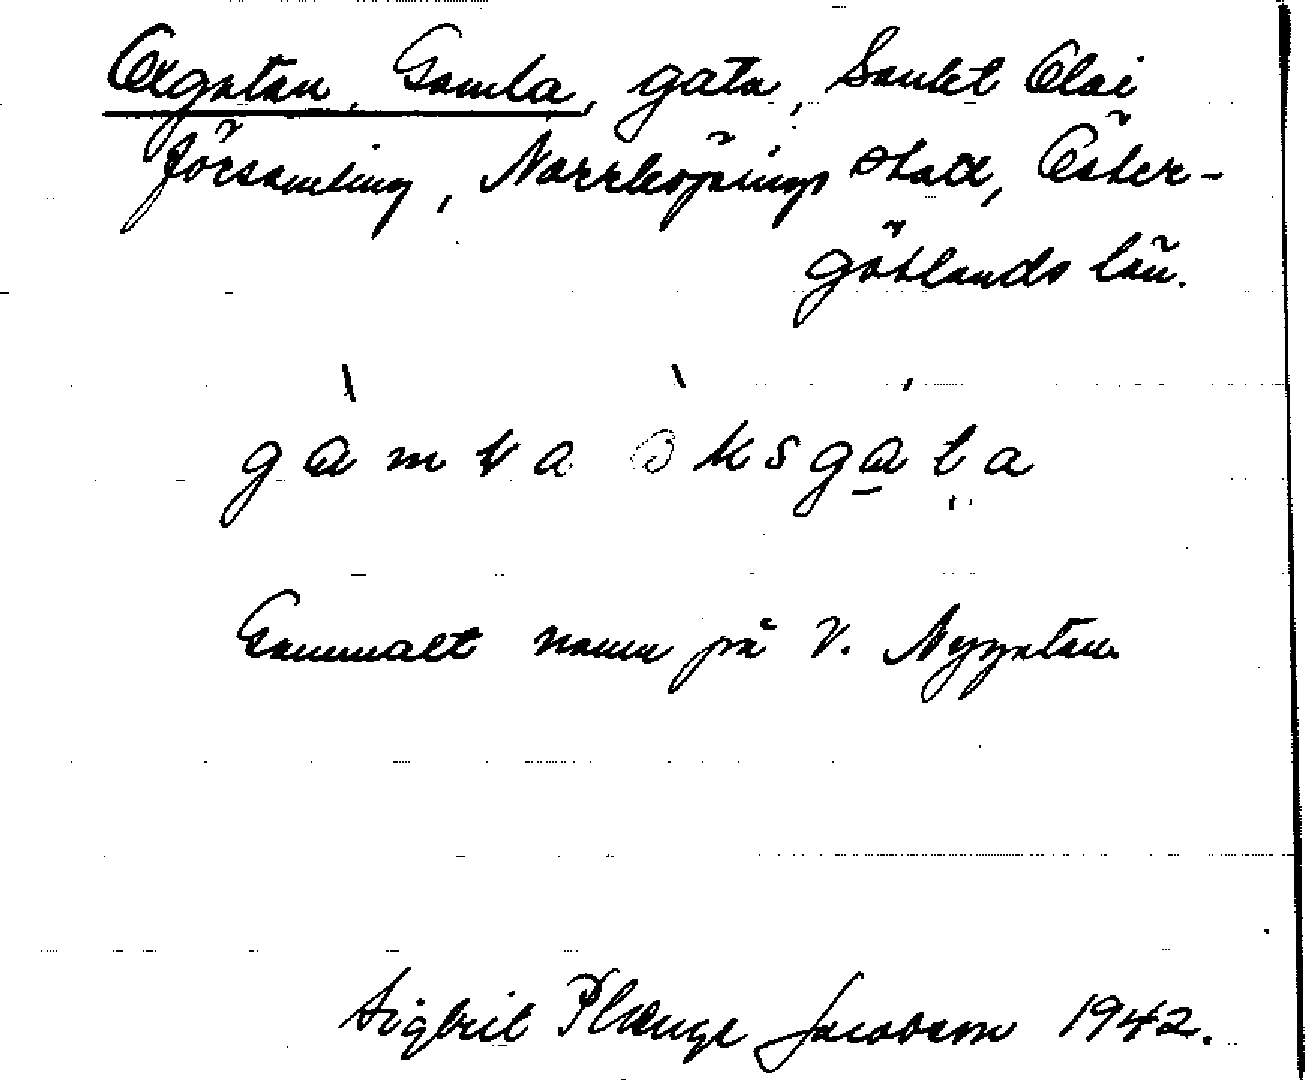 Oxgatan, Gamla, gata, Sankt Olai
församling, Norrköpings stad, Öster-
götlands län.
gàmḷa òksgạta
Gammalt namn på V. Nygatan.
Sigbrit Plænge Jacobson 1942.